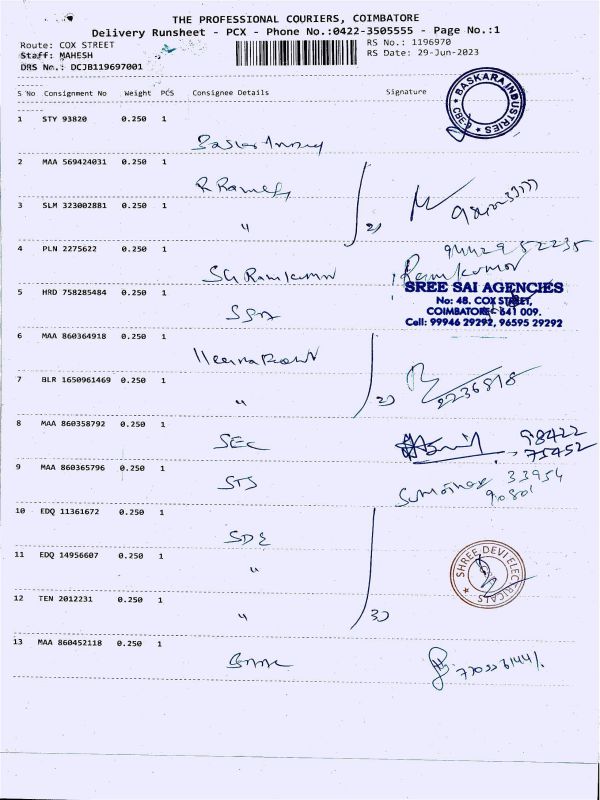 THE PROFESSIONAL COURIERS, COIMBATORE
Delivery Runsheet - PCX - Phone No.:0422-3505555 - Page No.:1
Route: COX STREET
RS No.: 1196970
Staff: MAHESH
RS Date: 29-Jun-2023
DRS No.: DCJB119697001
S No Consignment No Weight PCS Consignee Details Signature
BASKARA INDUSTRIES
CBE-9
1 STY 93820 0.250 1
2 MAA 569424031 0.250 1
R Ramesh
3 SLM 323002881 0.250 1
"
2)
4 PLN 2275622 0.250 1
94429 52235
SG Ramkumar
Ramkumar
5 HRD 758285484 0.250 1
SREE SAI AGENCIES
No: 48. COX STREET,
COIMBATORE - 641 009.
Cell: 99946 29292, 96595 29292
SSA
6 MAA 860364918 0.250 1
7 BLR 1650961469 0.250 1
"
2)
2236818
8 MAA 860358792 0.250 1
SEC
98422
75452
9 MAA 860365796 0.250 1
STS
33954
10 EDQ 11361672 0.250 1
SDE
11 EDQ 14956607 0.250 1
"
SHREE DEVI ELECTRICALS
12 TEN 2012231 0.250 1
"
3)
13 MAA 860452118 0.250 1